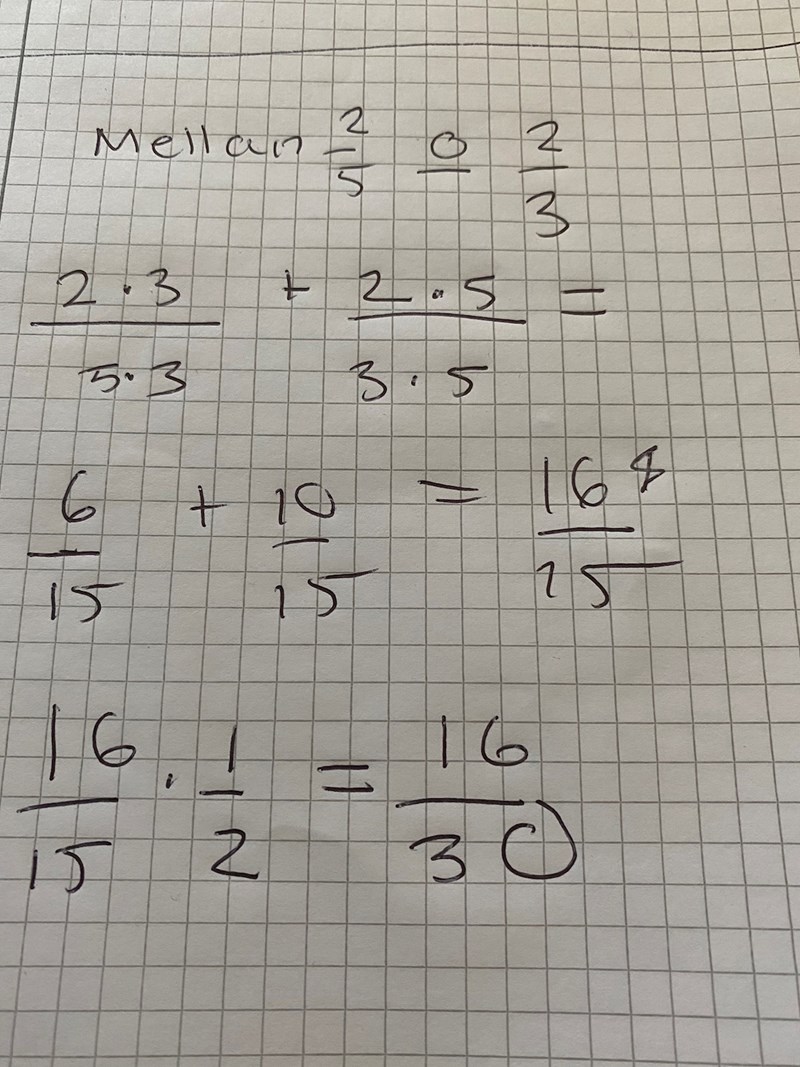 Mellan 2/5 o 2/3
2·3/5·3 + 2·5/3·5 =
6/15 + 10/15 = 16/15
16/15 · 1/2 = 16/30